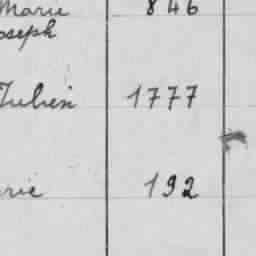 Marie 846
Joseph
Julien 1777
192